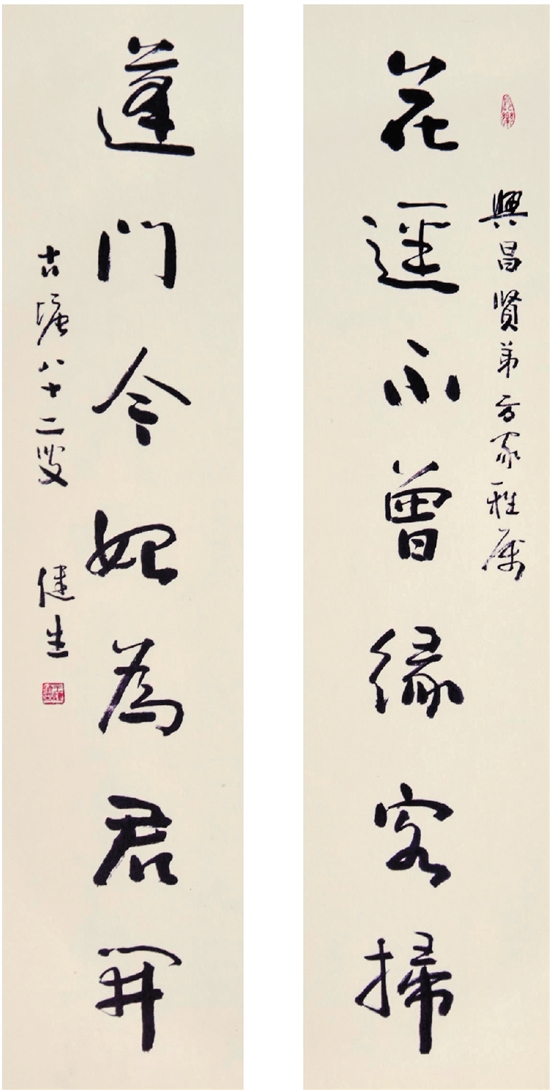 興昌賢弟方家雅属
花逕不曾緣客掃
蓬門今始為君開
古 八十二叟 健生